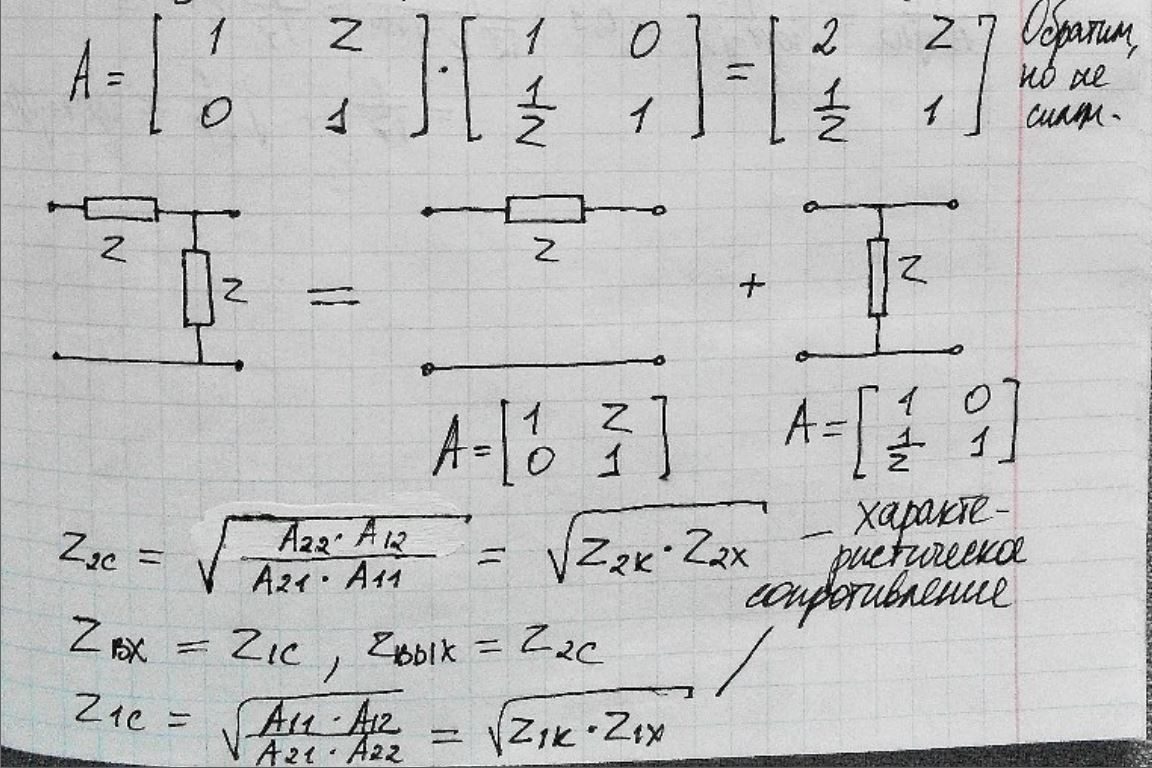 A = [ 1 Z ; 0 1 ] · [ 1 0 ; 1/Z 1 ] = [ 2 Z ; 1/Z 1 ] Обратим,
но не
симм.
Z Z = Z + Z
A = [ 1 Z ; 0 1 ] A = [ 1 0 ; 1/Z 1 ]
Z2c = √(A22 · A12 / A21 · A11) = √(Z2к · Z2х) – характе-
ристическое
сопротивление
Zвх = Z1c , Zвых = Z2c
Z1c = √(A11 · A12 / A21 · A22) = √(Z1к · Z1х)